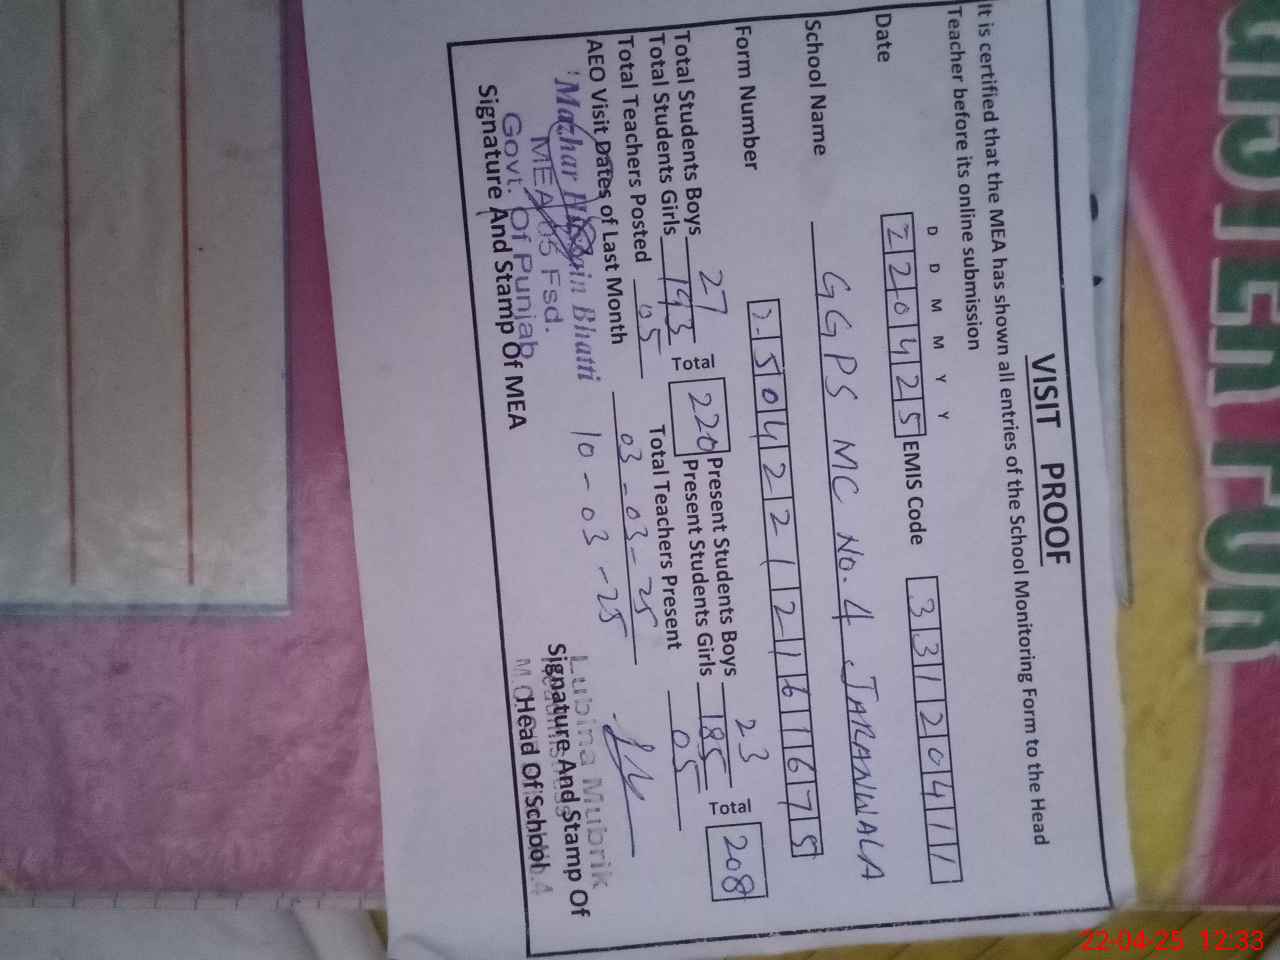 VISIT PROOF
It is certified that the MEA has shown all entries of the School Monitoring Form to the Head
Teacher before its online submission
D D M M Y Y
Date 220425 EMIS Code 33120411
School Name GGPS MC No. 4 JARANWALA
Form Number 250422121611675
Total Students Boys 27 Total 220 Present Students Boys 23 Total 208
Total Students Girls 193 Present Students Girls 185
Total Teachers Posted 05 Total Teachers Present 05
AEO Visit Dates of Last Month 03-03-25
10-03-25
Mazhar Bhatti
MEA 05 Fsd.
Govt. Of Punjab
Signature And Stamp Of MEA
Lubina Mubrik
Signature And Stamp Of
Head Of School
22-04-25 12:33